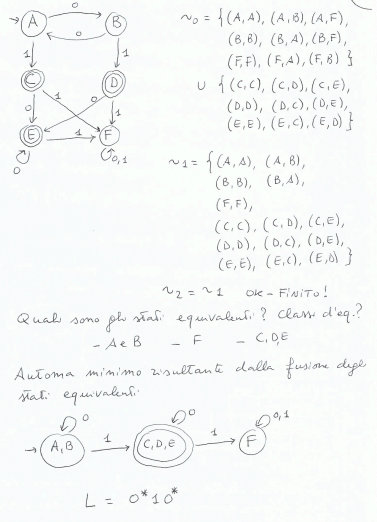 0
A B
0
1 1
C D
0 1 0 1
E 1 F
0 0,1
~₀ = { (A,A), (A,B), (A,F),
(B,B), (B,A), (B,F),
(F,F), (F,A), (F,B) }
∪ { (C,C), (C,D), (C,E),
(D,D), (D,C), (D,E),
(E,E), (E,C), (E,D) }
~₁ = { (A,A), (A,B),
(B,B), (B,A),
(F,F),
(C,C), (C,D), (C,E),
(D,D), (D,C), (D,E),
(E,E), (E,C), (E,D) }
~₂ = ~₁ OK - FINITO!
Quali sono gli stati equivalenti? Classi d'eq.?
- A e B - F - C,D,E
Automa minimo risultante dalla fusione degli
stati equivalenti.
0 0 0,1
A,B 1 C,D,E 1 F
L = 0*10*